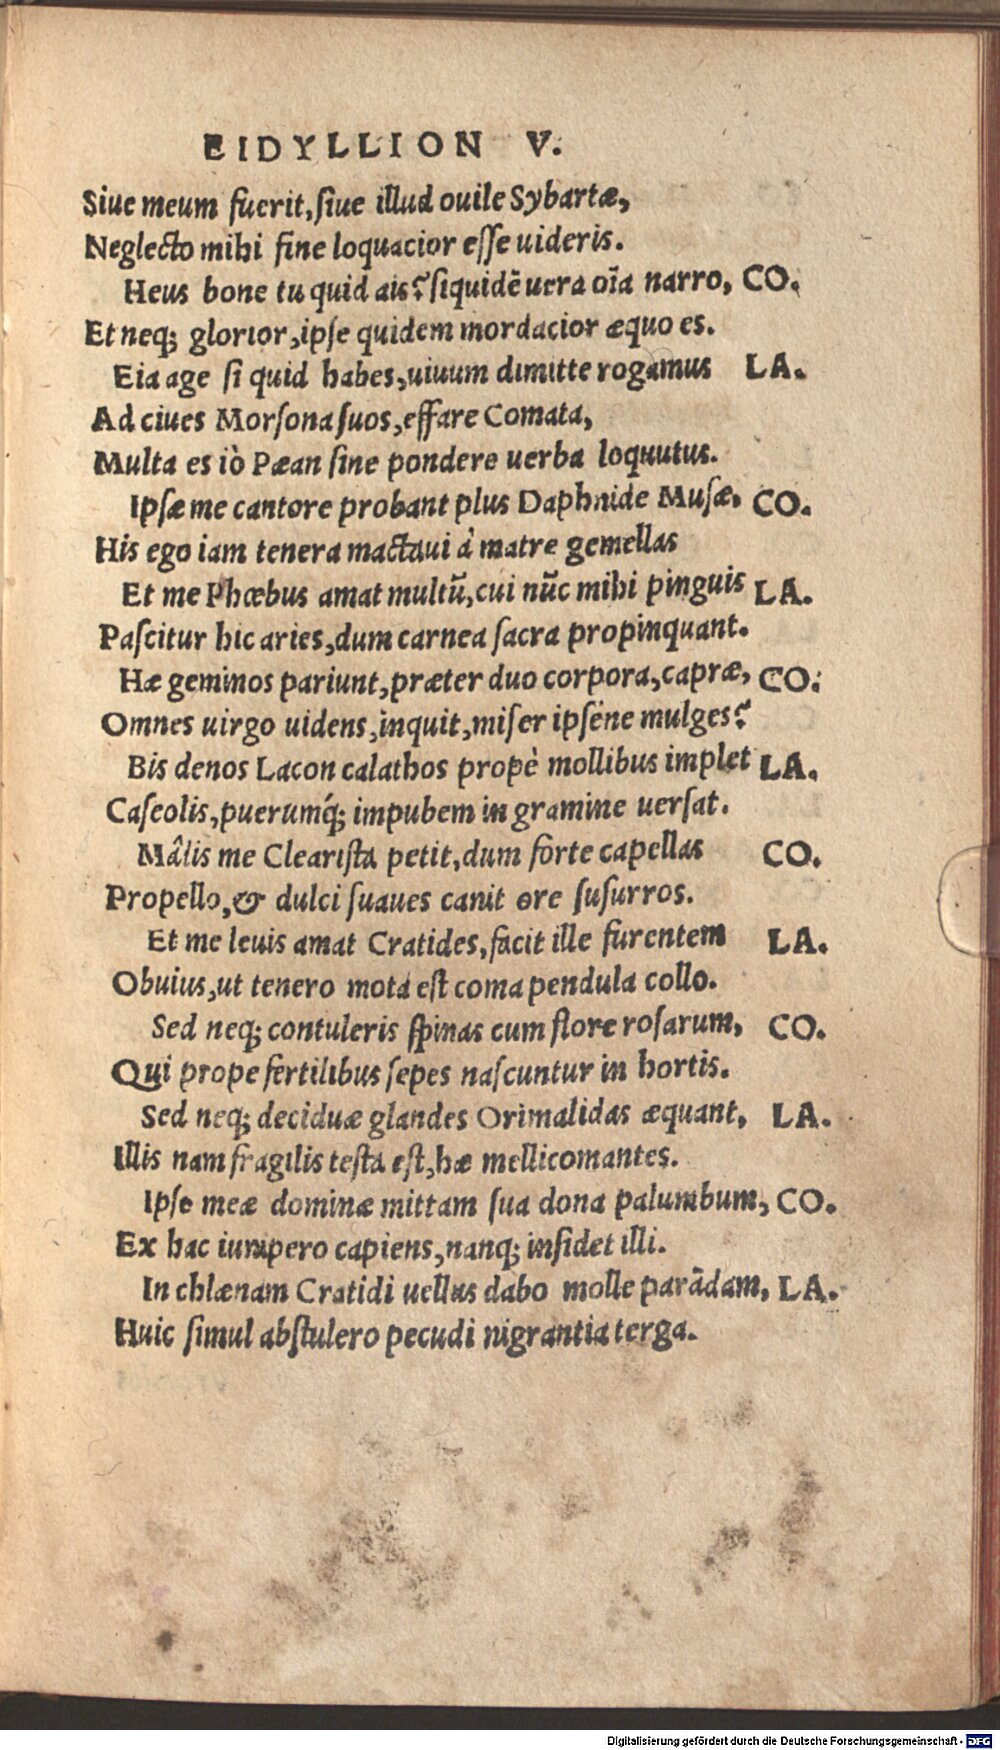 EIDYLLION V.
Siue meum fuerit, siue illud ouile Sybartæ,
Neglecto mihi sine loquacior esse uideris.
Heus bone tu quid ais? siquidẽ uera oĩa narro, CO.
Et neq; glorior, ipse quidem mordacior æquo es.
Eia age si quid habes, uiuum dimitte rogamus LA.
Ad ciues Morsona suos, effare Comata,
Multa es iò Pæan sine pondere uerba loquutus.
Ipsæ me cantore probant plus Daphnide Musæ, CO.
His ego iam tenera mactaui à matre gemellas
Et me Phœbus amat multũ, cui nũc mihi pinguis LA.
Pascitur hic aries, dum carnea sacra propinquant.
Hæ geminos pariunt, præter duo corpora, capræ, CO.
Omnes uirgo uidens, inquit, miser ipséne mulges?
Bis denos Lacon calathos propè mollibus implet LA.
Caseolis, puerumq́; impubem in gramine uersat.
Mâlis me Clearista petit, dum forte capellas CO.
Propello, & dulci suaues canit ore susurros.
Et me leuis amat Cratides, facit ille furentem LA.
Obuius, ut tenero mota est coma pendula collo.
Sed neq; contuleris spinas cum flore rosarum, CO.
Qui prope fertilibus sepes nascuntur in hortis.
Sed neq; deciduæ glandes Orimalidas æquant, LA.
Illis nam fragilis testa est, hæ mellicomantes.
Ipse meæ dominæ mittam sua dona palumbum, CO.
Ex hac iunipero capiens, nanq; insidet illi.
In chlænam Cratidi uellus dabo molle parãdam, LA.
Huic simul abstulero pecudi nigrantia terga.
Digitalisierung gefördert durch die Deutsche Forschungsgemeinschaft - DFG